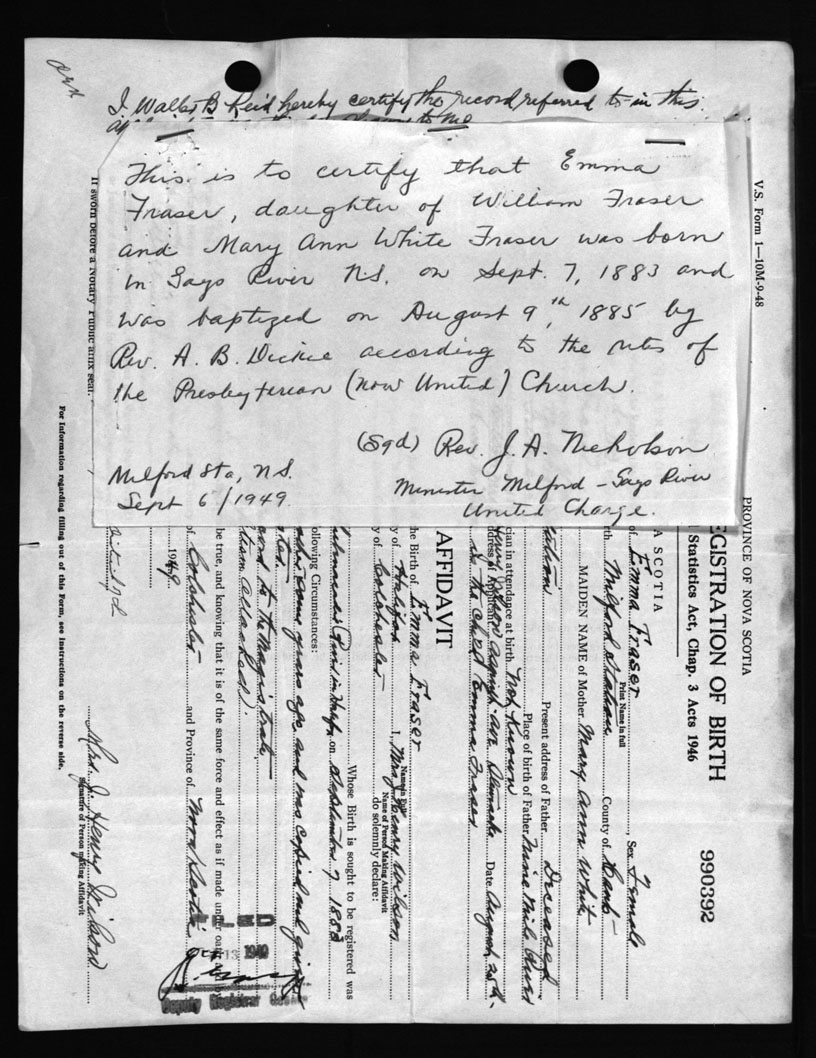 I Walter B Reid hereby certify the record referred to in this
to me
This is to certify that Emma
Fraser, daughter of William Fraser
and Mary Ann White Fraser was born
in Gays River N.S. on Sept. 7, 1883 and
was baptized on August 9th, 1885 by
Rev. A. B. Dickie according to the rites of
the Presbyterian (now United) Church.
(Sgd) Rev. J. A. Nicholson
Minister Milford - Gays River
United Charge.
Milford Sta, N.S.
Sept 6/1949
V.S. Form 1—10M-9-48
PROVINCE OF NOVA SCOTIA
EGISTRATION OF BIRTH
Statistics Act, Chap. 3 Acts 1946
990392
A SCOTIA
of Emma Fraser, Sex Female
Print Name in full
Milford Station County of
MAIDEN NAME of Mother Mary Ann White
Present address of Father Deceased
Place of birth of Father Nine Mile River
cian in attendance at birth Not Known
Date August 25th
is the child Emma Fraser
AFFIDAVIT
the Birth of Emma Fraser
Name in Full
of Halifax I, Mrs J Henry Wilson
Name of Person Making Affidavit
y of Colchester do solemnly declare:
Whose Birth is sought to be registered was
on September 7 1883
ollowing Circumstances:
some years ago and was copied and given
to the Magistrate
attached).
be true, and knowing that it is of the same force and effect as if made under oath
of Colchester and Province of Nova Scotia
1949
FILED
1949
Deputy Registrar
Mrs. J. Henry Wilson
Signature of Person making Affidavit
For Information regarding filling out of this Form, see instructions on the reverse side.
If sworn before a Notary Public affix seal.